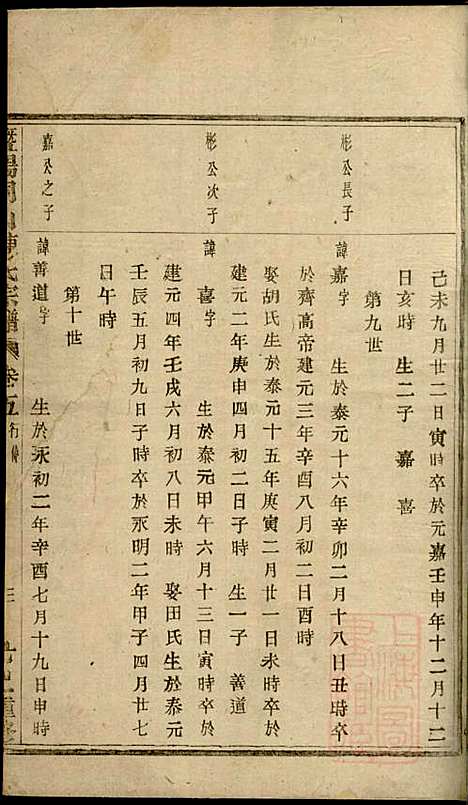 己未九月廿二日寅時卒於元嘉壬申年十二月十二
日亥時　生二子　嘉　喜
第九世
彬公長子
諱嘉字　生於泰元十六年辛卯二月十八日丑時卒
於齊高帝建元三年辛酉八月初二日酉時
娶胡氏生於泰元十五年庚寅二月廿一日未時卒於
建元二年庚申四月初二日子時　生一子　善道
彬公次子
諱喜字　生於泰元甲午六月十三日寅時卒於
建元四年壬戌六月初八日未時　娶田氏生於泰元
壬辰五月初九日子時卒於永明二年甲子四月廿七
日午時
第十世
嘉公之子
諱善道字　生於永初二年辛酉七月十九日申時
暨陽同山陳氏宗譜　卷五　行傳　三
上海圖書館藏